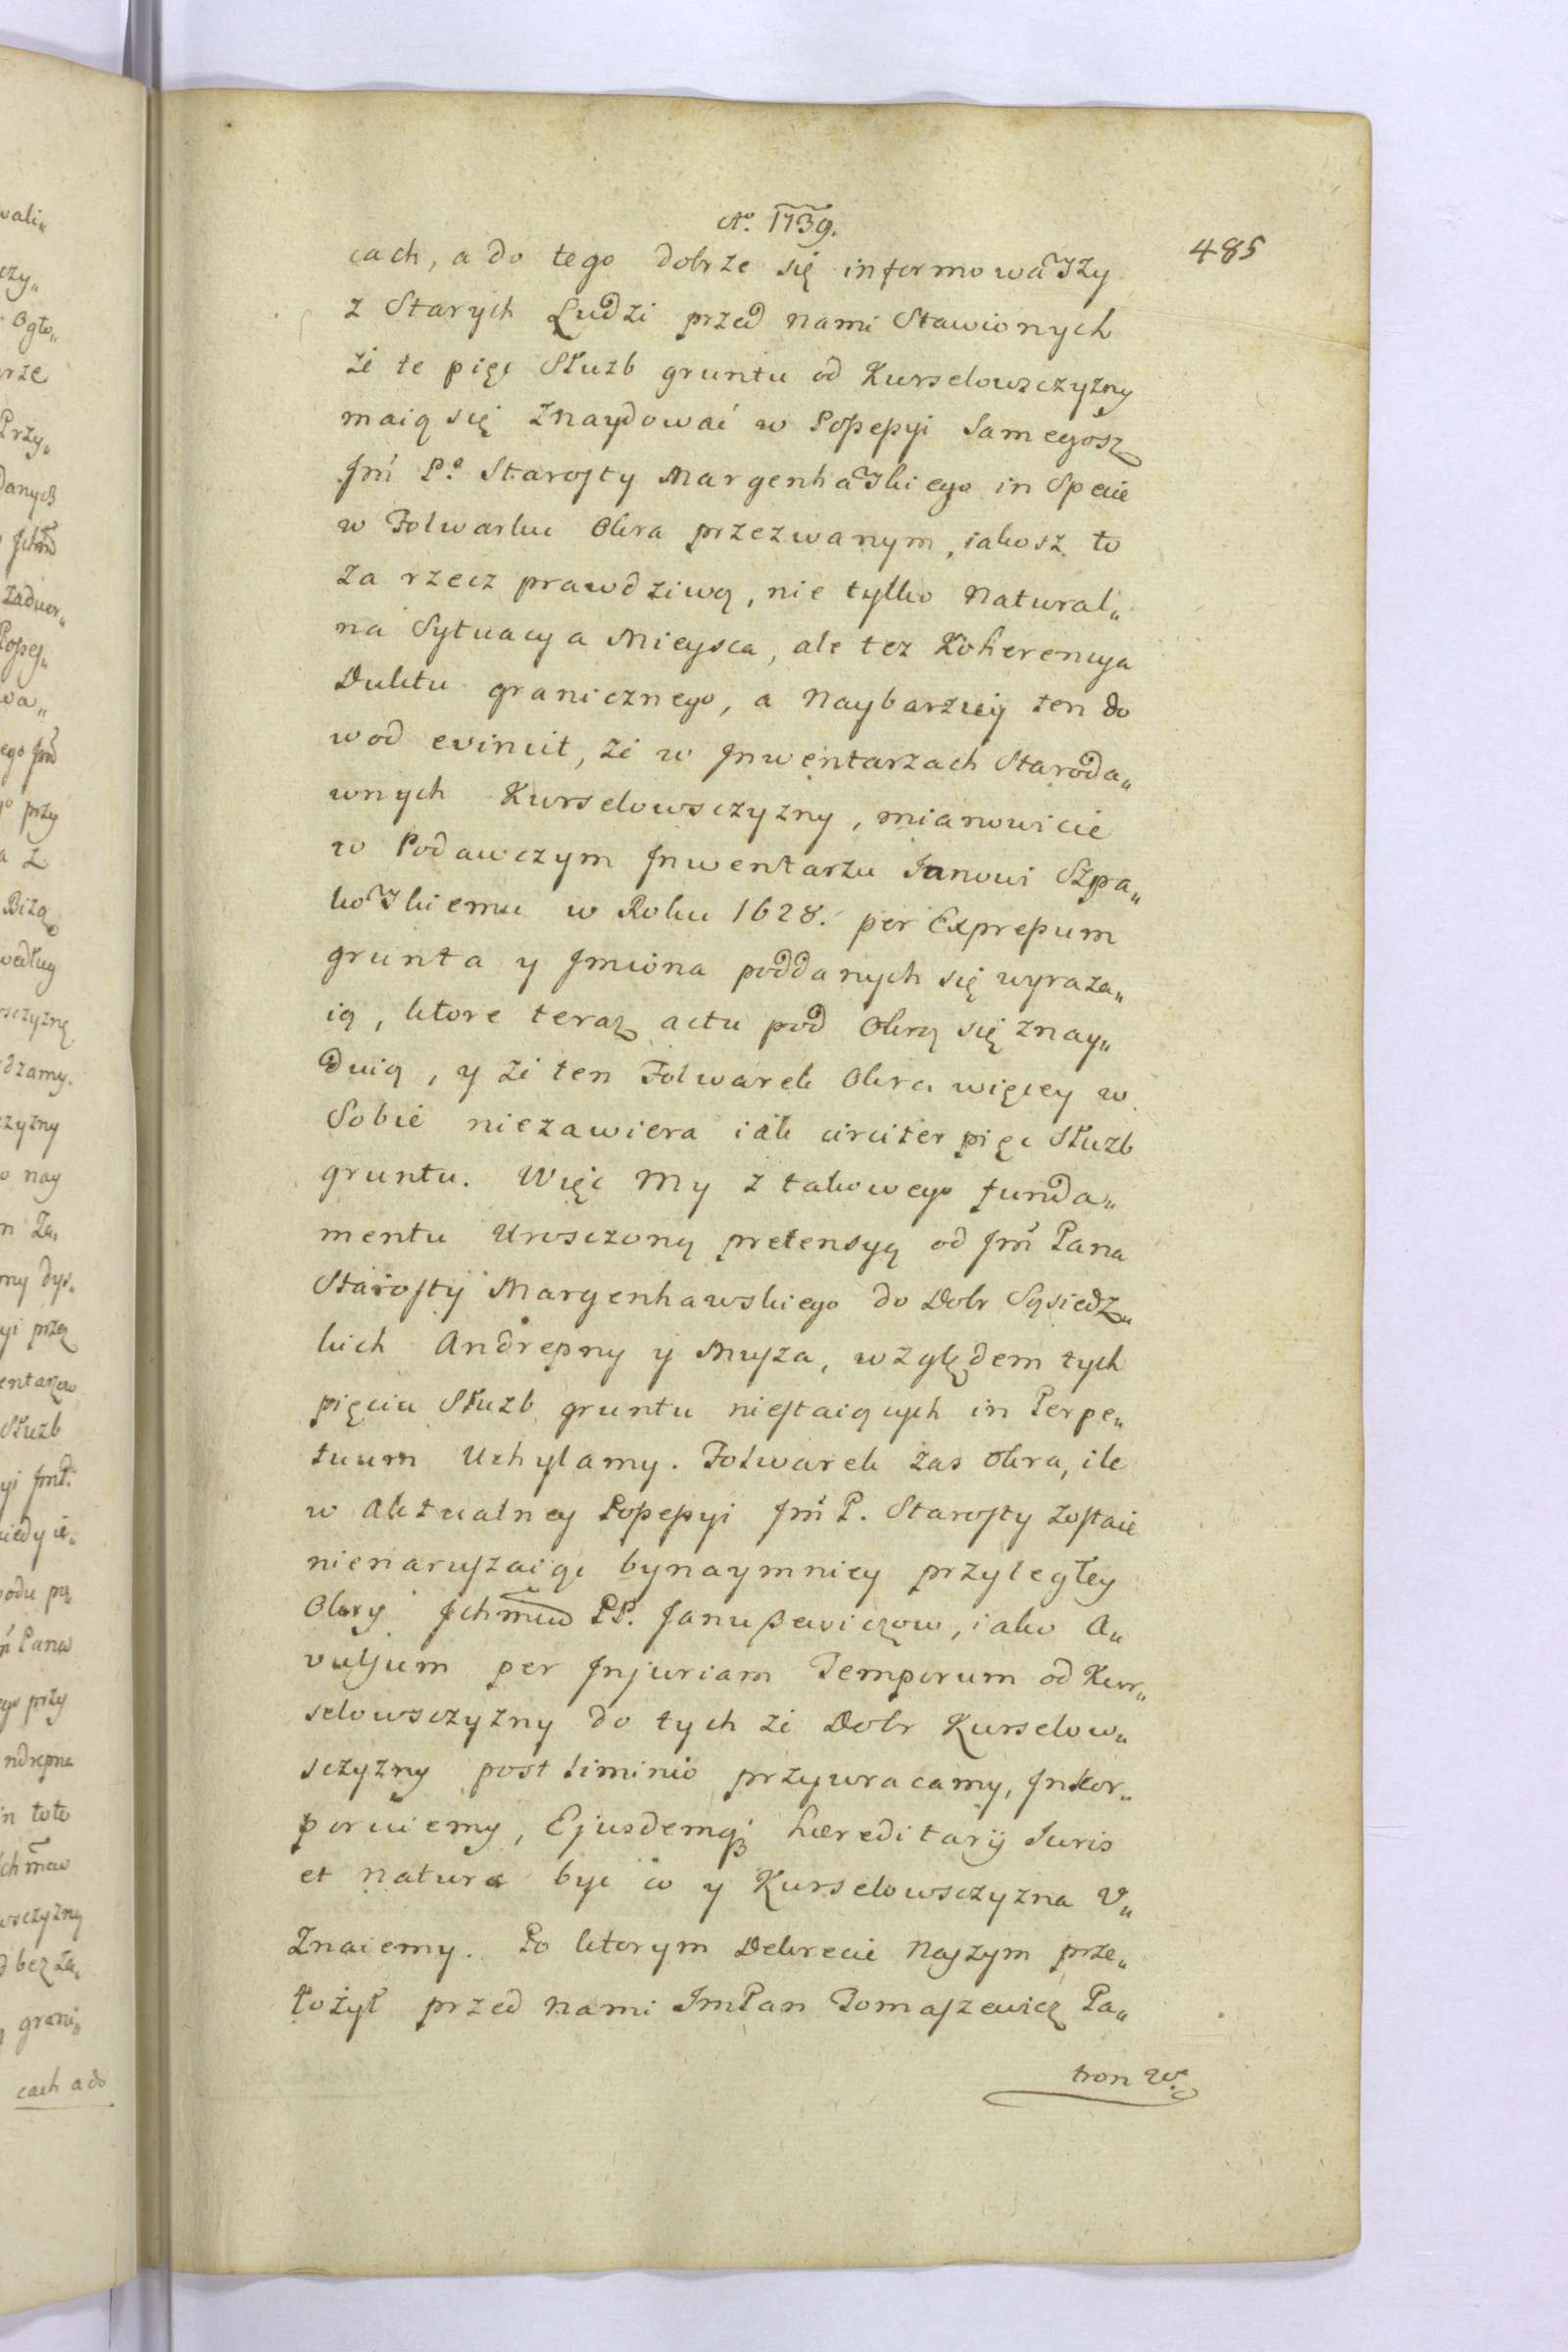 Aº. 1739.
485
cach, a do tego dobrze się informowawszy
z Starych Ludzi przed nami Stawionych
że te pięć Słuzb gruntu od Kurselowsczyzny
maią się Znaydować w Possessyi Samegosz
Jmć Pº. Starosty Margenhawskiego in Specie
w Folwarku Okra przezwanym, iakosz to
Za rzecz prawdziwą, nie tylko Natural„
na Sytuacya Mieysca, ale tez Koherencya
Duktu granicznego, a Naybarziey ten do
wod evincit, że w Jnwentarzach Staroda„
wnych Kurselowsczyzny, mianowicie
w Podawczym Jnwentarzu Janowi Szpa„
kowskiemu w Roku 1628. per Expressum
grunta y Jmiona poddanych się wyraza„
ią, ktore teraz actu pod Okrą się znay„
duią, y że ten Folwarek Okra więcey w
Sobie niezawiera iak circiter pięc Słuzb
gruntu. Więc My z takowego funda„
mentu Urosczoną pretensyą od Jmć Pana
Starosty Margenhawskiego do Dobr Sąsiedz„
kich Andrepny y Muyza, względem tych
pięciu Słuzb gruntu niestaiących in Perpe„
tuum Uchylamy. Folwarek zas Okra, ile
w Aktualney Possessyi Jmć P. Starosty zostaie
nienaruszaiąc bynaymniey przyległey
Okry Jchmciow PP. Januszewiczow, iako A„
vulsum per Injuriam Temporum od Kur„
selowsczyzny do tych że Dobr Kurselow„
sczyzny post liminio przywracamy, Jnkor„
poruiemy, Ejusdemq; hæreditarij Juris
et Natura być co y Kurselowsczyzna V„
Znaiemy. Po ktorym Dekrecie Naszym prze„
łożył przed nami JmPan Tomaszewicz Pa„
tron W.